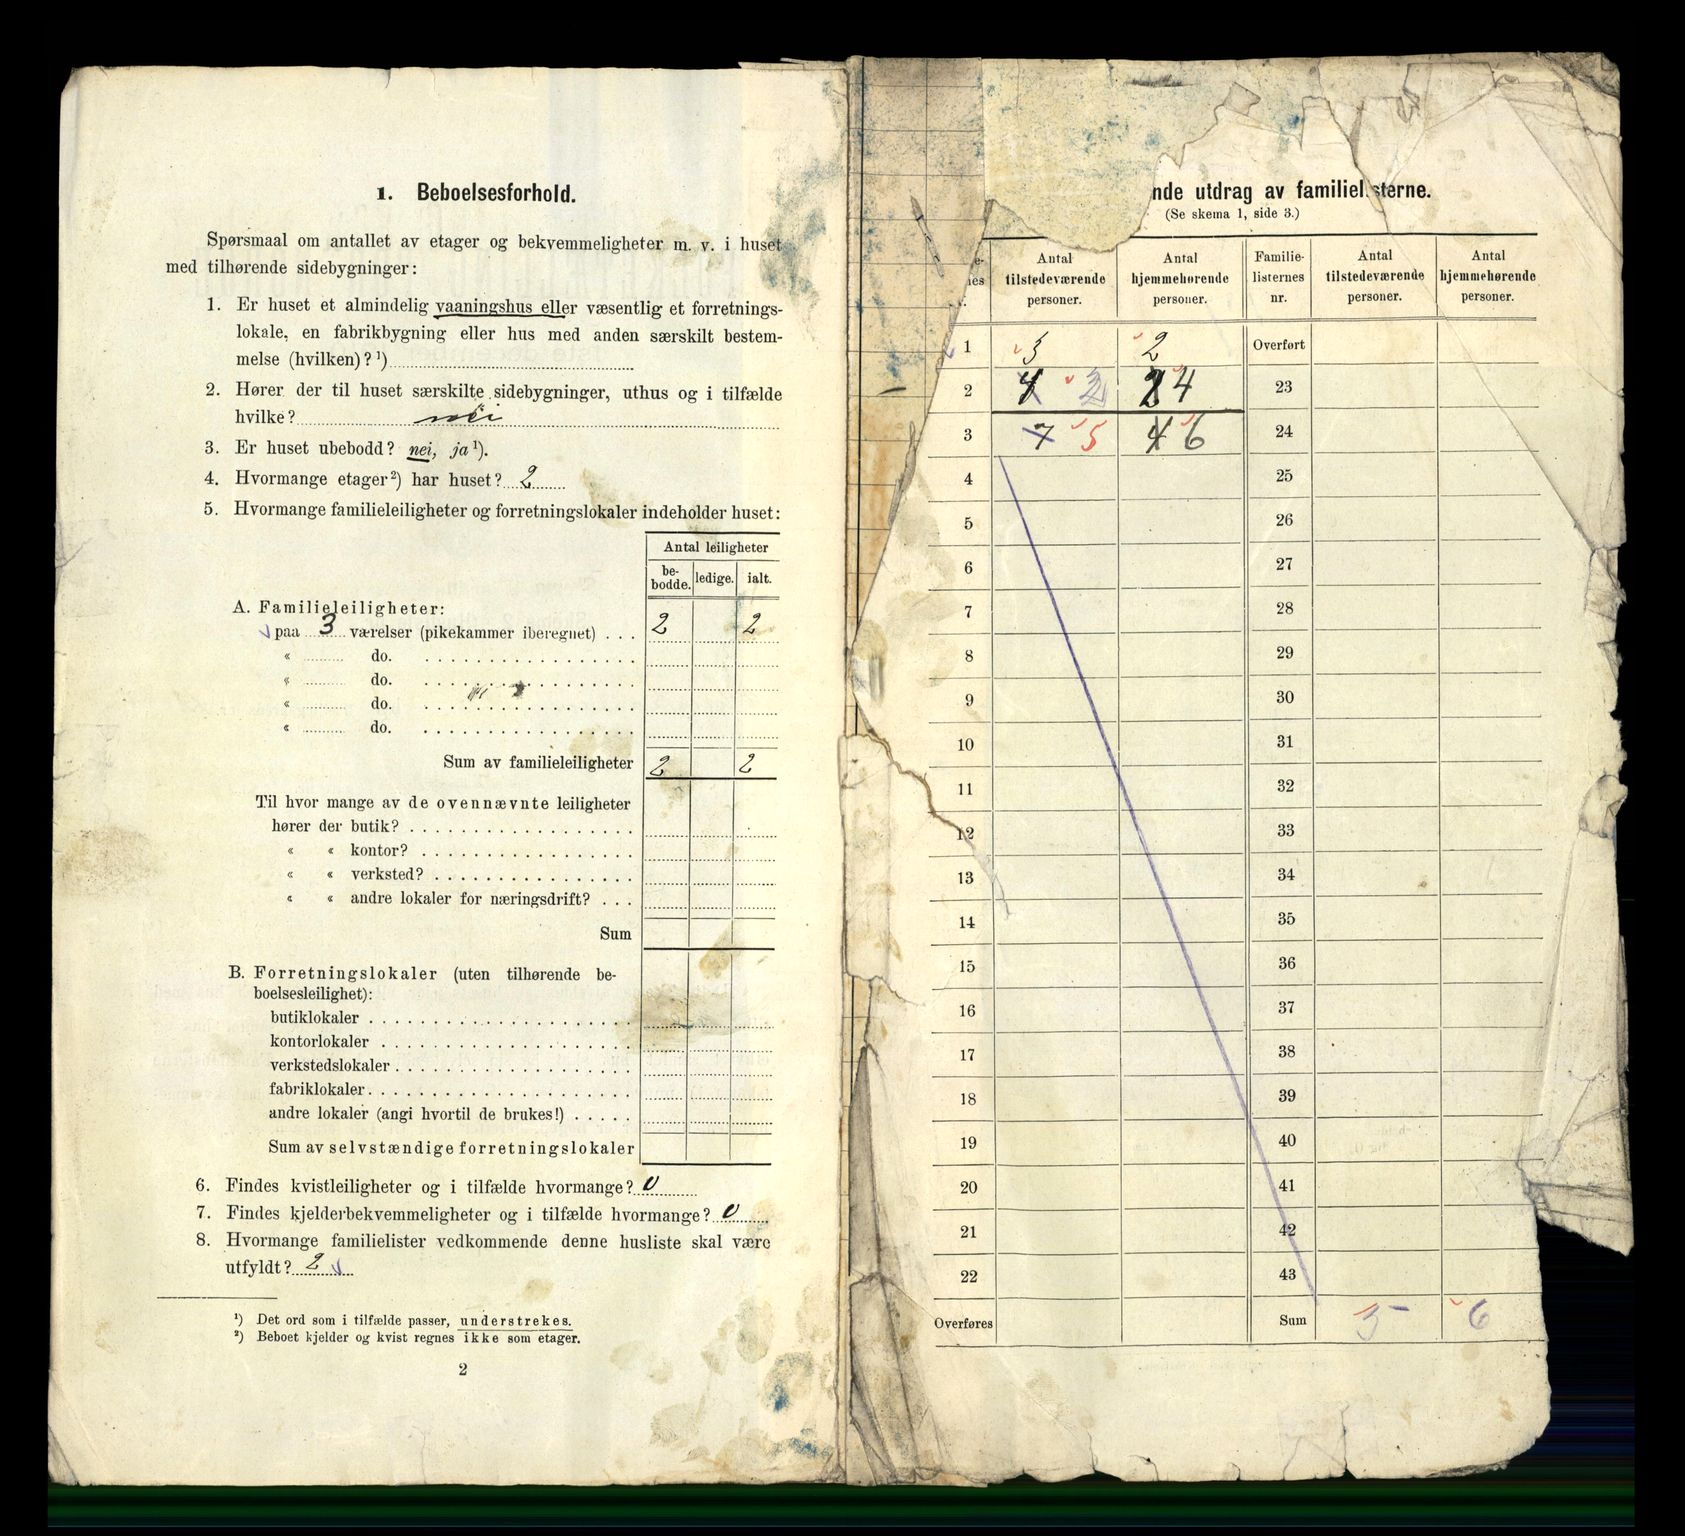 1. Beboelsesforhold.
Spørsmaal om antallet av etager og bekvemmeligheter m. v. i huset
med tilhørende sidebygninger:
1. Er huset et almindelig vaaningshus eller væsentlig et forretnings-
lokale, en fabrikbygning eller hus med anden særskilt bestem-
melse (hvilken)? ¹)
2. Hører der til huset særskilte sidebygninger, uthus og i tilfælde
hvilke? nei
3. Er huset ubebodd? nei, ja ¹).
4. Hvormange etager ²) har huset? 2
5. Hvormange familieleiligheter og forretningslokaler indeholder huset:
Antal leiligheter
be-
bodde. ledige. ialt.
A. Familieleiligheter:
paa 3 værelser (pikekammer iberegnet) . . . 2 2
« do.
« do.
« do.
« do.
Sum av familieleiligheter 2 2
Til hvor mange av de ovennævnte leiligheter
hører der butik?
« « kontor?
« « verksted?
« « andre lokaler for næringsdrift?
Sum
B. Forretningslokaler (uten tilhørende be-
boelsesleilighet):
butiklokaler
kontorlokaler
verkstedslokaler
fabriklokaler
andre lokaler (angi hvortil de brukes!)
Sum av selvstændige forretningslokaler
6. Findes kvistleiligheter og i tilfælde hvormange? 0
7. Findes kjelderbekvemmeligheter og i tilfælde hvormange? 0
8. Hvormange familielister vedkommende denne husliste skal være
utfyldt? 2
¹) Det ord som i tilfælde passer, understrekes.
²) Beboet kjelder og kvist regnes ikke som etager.
2
nde utdrag av familielisterne.
(Se skema 1, side 3.)
Antal Antal Familie- Antal Antal
tilstedeværende hjemmehørende listernes tilstedeværende hjemmehørende
personer. personer. nr. personer. personer.
1 3 2 Overført
2 4 2 2 4 23
3 7 5 4 6 24
4 25
5 26
6 27
7 28
8 29
9 30
10 31
11 32
12 33
13 34
14 35
15 36
16 37
17 38
18 39
19 40
20 41
21 42
22 43
Overføres Sum 5 6